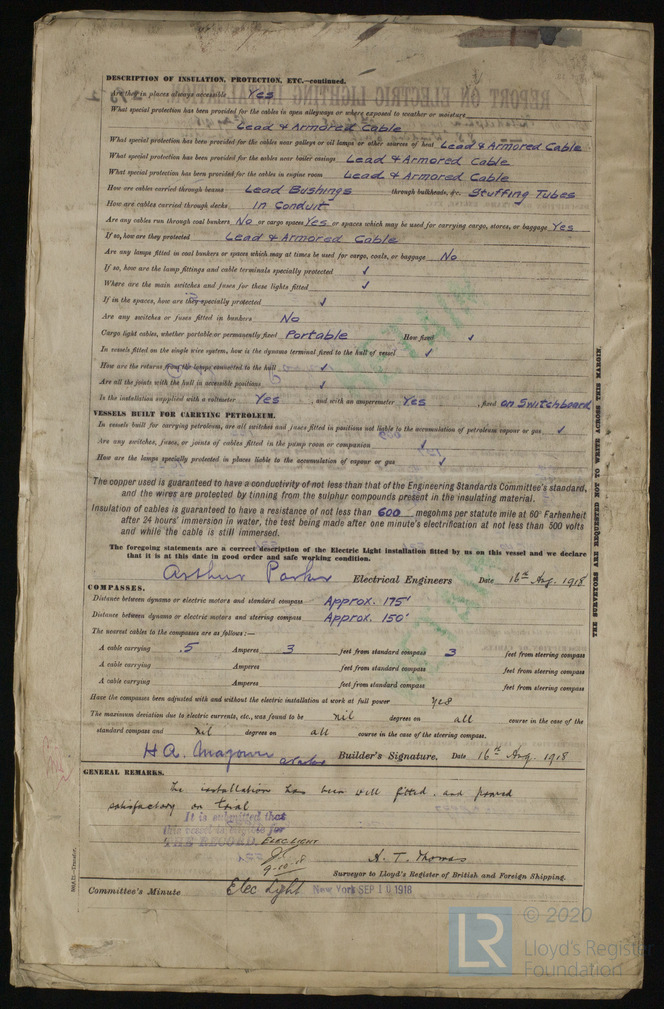 DESCRIPTION OF INSULATION, PROTECTION, ETC.—continued.
Are they in places always accessible Yes
What special protection has been provided for the cables in open alleyways or where exposed to weather or moisture
Lead & Armored Cable
What special protection has been provided for the cables near galleys or oil lamps or other sources of heat Lead & Armored Cable
What special protection has been provided for the cables near boiler casings Lead & Armored Cable
What special protection has been provided for the cables in engine room Lead & Armored Cable
How are cables carried through beams Lead Bushings through bulkheads, &c. Stuffing Tubes
How are cables carried through decks In Conduit
Are any cables run through coal bunkers No or cargo spaces Yes or spaces which may be used for carrying cargo, stores, or baggage Yes
If so, how are they protected Lead & Armored Cable
Are any lamps fitted in coal bunkers or spaces which may at times be used for cargo, coals, or baggage No
If so, how are the lamp fittings and cable terminals specially protected ✓
Where are the main switches and fuses for these lights fitted ✓
If in the spaces, how are they specially protected ✓
Are any switches or fuses fitted in bunkers No
Cargo light cables, whether portable or permanently fixed Portable How fixed ✓
In vessels fitted on the single wire system, how is the dynamo terminal fixed to the hull of vessel ✓
How are the returns from the lamps connected to the hull ✓
Are all the joints with the hull in accessible positions ✓
Is the installation supplied with a voltmeter Yes, and with an amperemeter Yes, fixed on Switchboard
VESSELS BUILT FOR CARRYING PETROLEUM.
In vessels built for carrying petroleum, are all switches and fuses fitted in positions not liable to the accumulation of petroleum vapour or gas ✓
Are any switches, fuses, or joints of cables fitted in the pump room or companion ✓
How are the lamps specially protected in places liable to the accumulation of vapour or gas ✓
The copper used is guaranteed to have a conductivity of not less than that of the Engineering Standards Committee's standard,
and the wires are protected by tinning from the sulphur compounds present in the insulating material.
Insulation of cables is guaranteed to have a resistance of not less than 600 megohms per statute mile at 60° Farhenheit
after 24 hours' immersion in water, the test being made after one minute's electrification at not less than 500 volts
and while the cable is still immersed.
The foregoing statements are a correct description of the Electric Light installation fitted by us on this vessel and we declare
that it is at this date in good order and safe working condition.
Arthur Parker Electrical Engineers Date 16th Aug. 1918
COMPASSES.
Distance between dynamo or electric motors and standard compass Approx. 175'
Distance between dynamo or electric motors and steering compass Approx. 150'
The nearest cables to the compasses are as follows:—
A cable carrying .5 Amperes 3 feet from standard compass 3 feet from steering compass
A cable carrying Amperes feet from standard compass feet from steering compass
A cable carrying Amperes feet from standard compass feet from steering compass
Have the compasses been adjusted with and without the electric installation at work at full power Yes
The maximum deviation due to electric currents, etc., was found to be nil degrees on all course in the case of the
standard compass and nil degrees on all course in the case of the steering compass.
H A. Magoun Builder's Signature. Date 16th Aug. 1918
GENERAL REMARKS.
The installation has been well fitted, and proved
satisfactory on trial
It is submitted that
this vessel is eligible for
THE RECORD. ELEC LIGHT
9-10-18
A. T. Thomas
Surveyor to Lloyd's Register of British and Foreign Shipping.
Committee's Minute Elec Light New York SEP 10 1918
THE SURVEYORS ARE REQUESTED NOT TO WRITE ACROSS THIS MARGIN.
© 2020
LR Lloyd's Register
Foundation